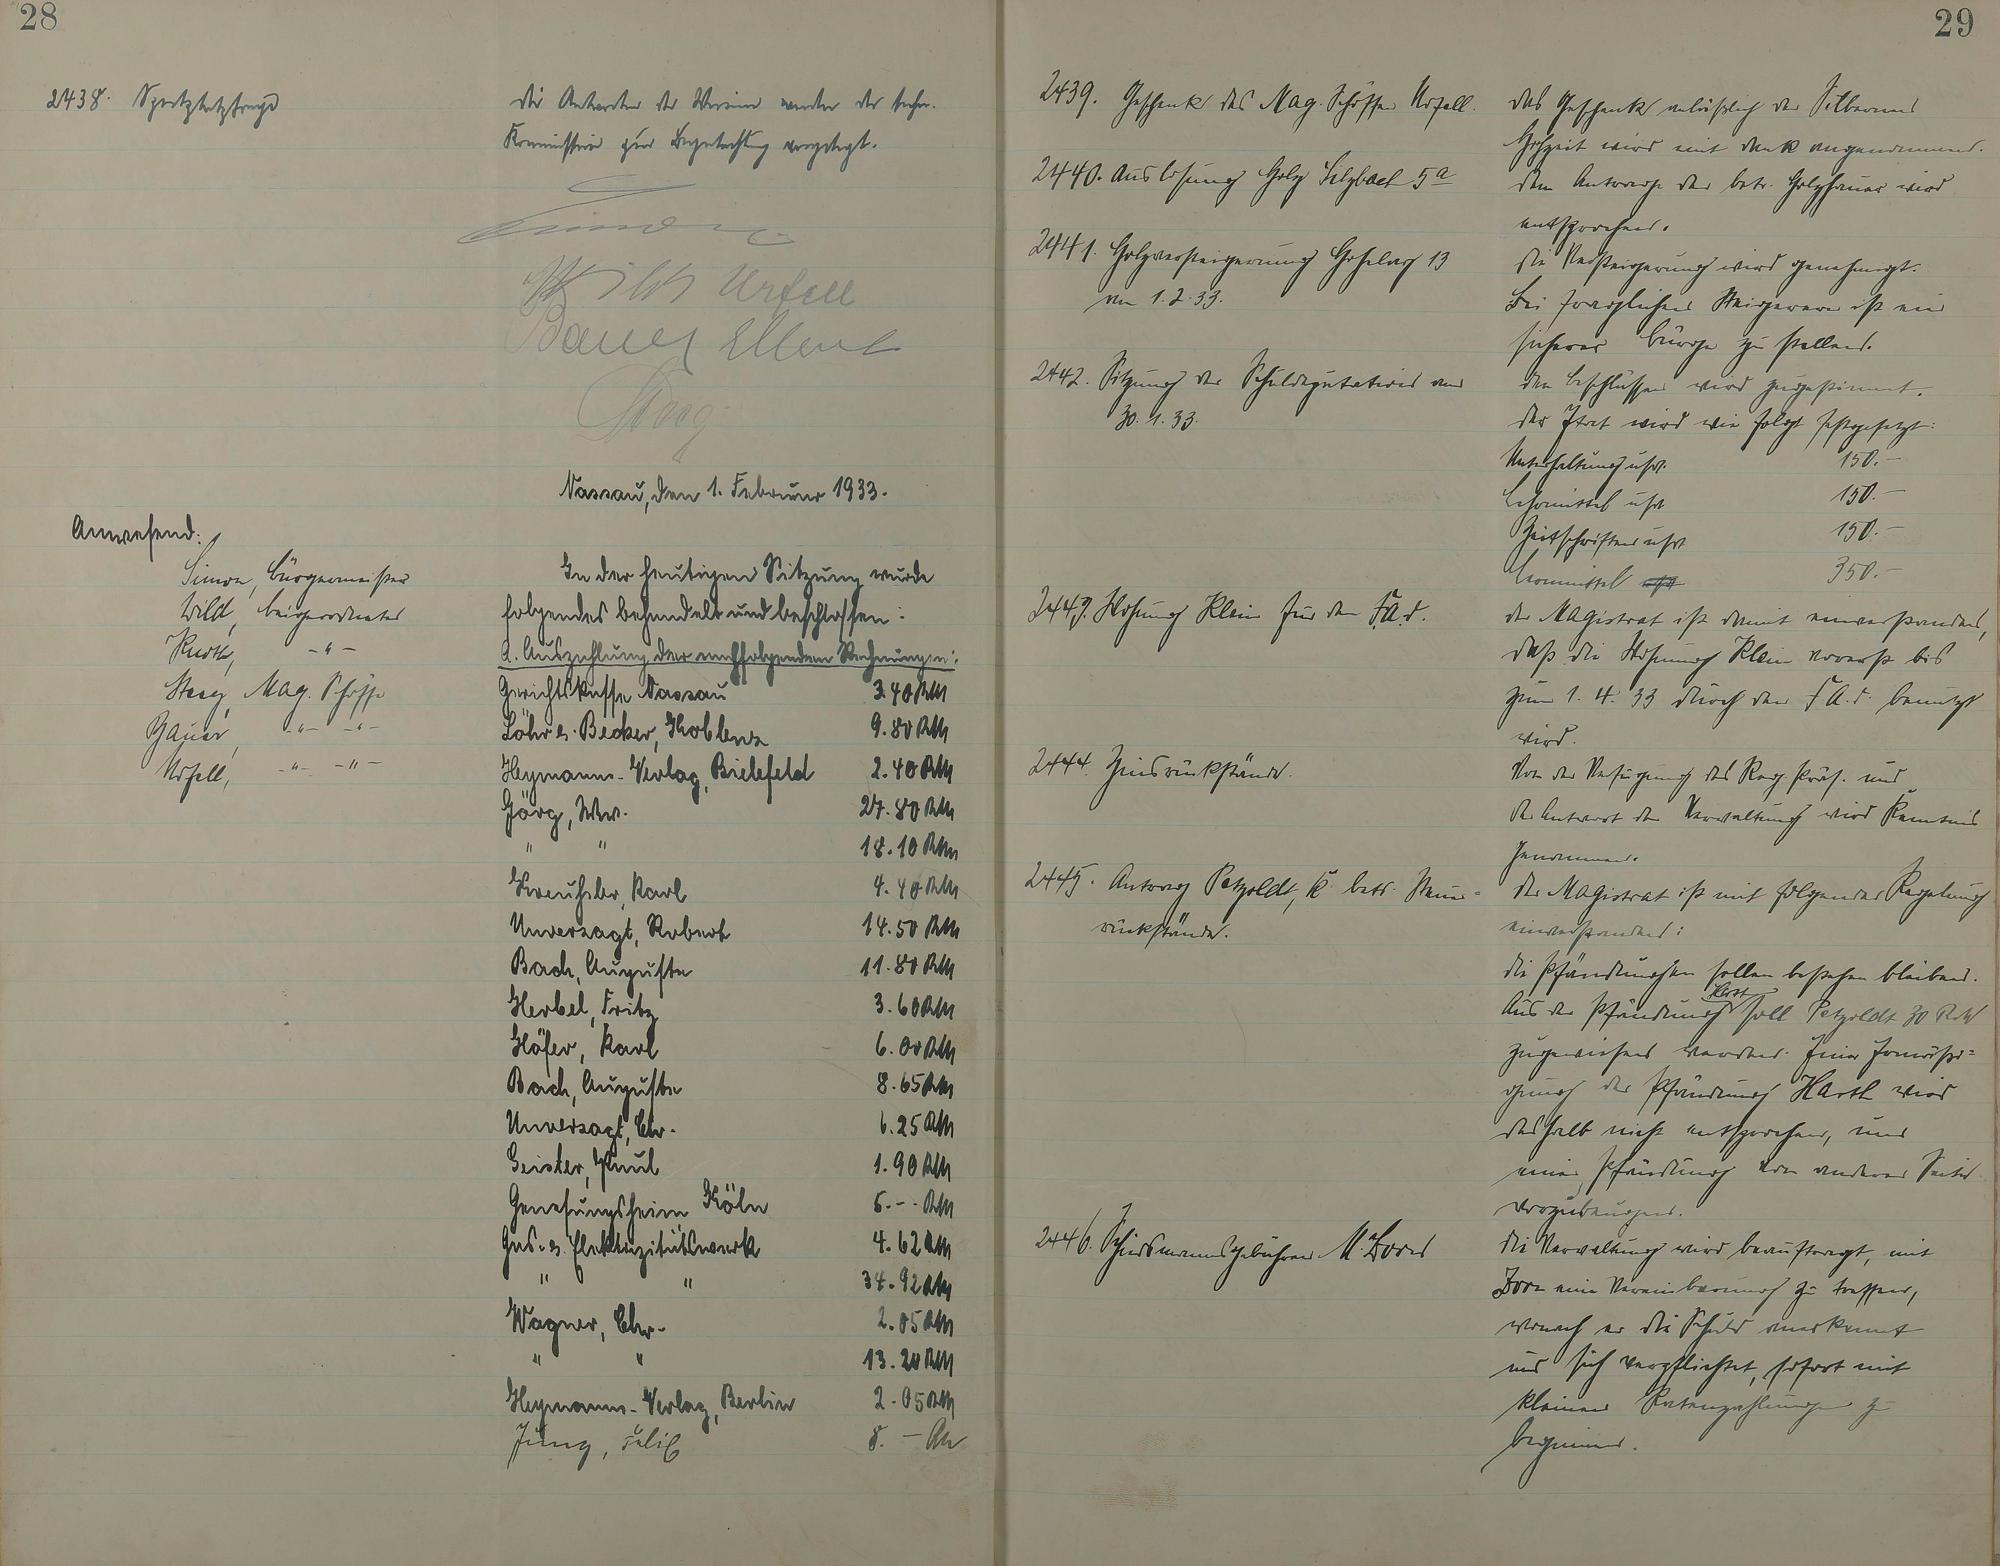 28
2438. Sportplatzfrage
Die Antworten der Vereine werden der techn.
Kommission zur Begutachtung vorgelegt.
Simon
Wild Unfell
Bauer
Nassau, den 1. Februar 1933.
Anwesend:
Simon, Bürgermeister
Wild, Beigeordneter
-"-
Mag. Schöffe
-"- -"-
Unfell, -"- -"-
In der heutigen Sitzung wurde
folgendes behandelt und beschlossen:
a. Auszahlung der nachfolgenden Rechnungen:
Gerichtskasse Nassau 3.40 RM
Löhr & Becker, Koblenz 9.80 RM
Heymanns-Verlag, Bielefeld 2.40 RM
Görg, Ww. 27.80 RM
" " 18.10 RM
Kreuhsler, Karl 4.40 RM
Unverzagt, Robert 14.50 RM
Bach, Auguste 11.80 RM
Herbel, Fritz 3.60 RM
Höfer, Karl 6.00 RM
Bach, Auguste 8.65 RM
Unverzagt, Chr. 6.25 RM
Geister, Paul 1.90 RM
Genesungsheim Köln 5.-- RM
Gas- & Elektrizitätswerk 4.62 RM
" " 34.92 RM
Wagner, Chr. 2.05 RM
" " 13.20 RM
Heymanns-Verlag, Berlin 2.05 RM
Jung, Felix 8.- RM
29
2439. Geschenk des Mag. Schöffen Unfell.
Das Geschenk anläßlich der Silbernen
Hochzeit wird mit Dank angenommen.
2440. Auslosung Holz Sulzbach 5a
Dem Antrage der betr. Holzhauer wird
entsprochen.
2441. Holzversteigerung Hohelay 13
am 1.2.33.
Die Versteigerung wird genehmigt.
Bei fraglichen Steigerern ist ein
sicherer Bürge zu stellen.
2442. Sitzung der Schuldeputation vom
30.1.33.
Den Beschlüssen wird zugestimmt.
Der Etat wird wie folgt festgesetzt:
Unterhaltung usw. 150.-
Lehrmittel usw 150.-
Zeitschriften usw 150.-
Lernmittel 350.-
2443. Wohnung Klein für den F.A.D.
Der Magistrat ist damit einverstanden,
daß die Wohnung Klein vorerst bis
zum 1. 4. 33 durch den F.A.D. benutzt
wird.
2444. Zinsrückstände.
Von der Verfügung des Reg. Präs. und
der Antwort der Verwaltung wird Kenntnis
genommen.
2445. Antrag Petzoldt, K. betr. Steuer=
rückstände.
Der Magistrat ist mit folgender Regelung
einverstanden:
Die Pfändungen sollen bestehen bleiben.
Aus der Pfändung Harth soll Petzoldt 30 RM
zugewiesen werden. Einer Ermäßi=
gung der Pfändung Harth wird
deshalb nicht entsprochen, um
einer Pfändung von anderer Seite
vorzubeugen.
2446. Schiedsmannsgebühren M. Dorn
Die Verwaltung wird beauftragt, mit
Dorn eine Vereinbarung zu treffen,
wonach er die Schuld anerkennt
und sich verpflichtet, sofort mit
kleinen Ratenzahlungen zu
beginnen.